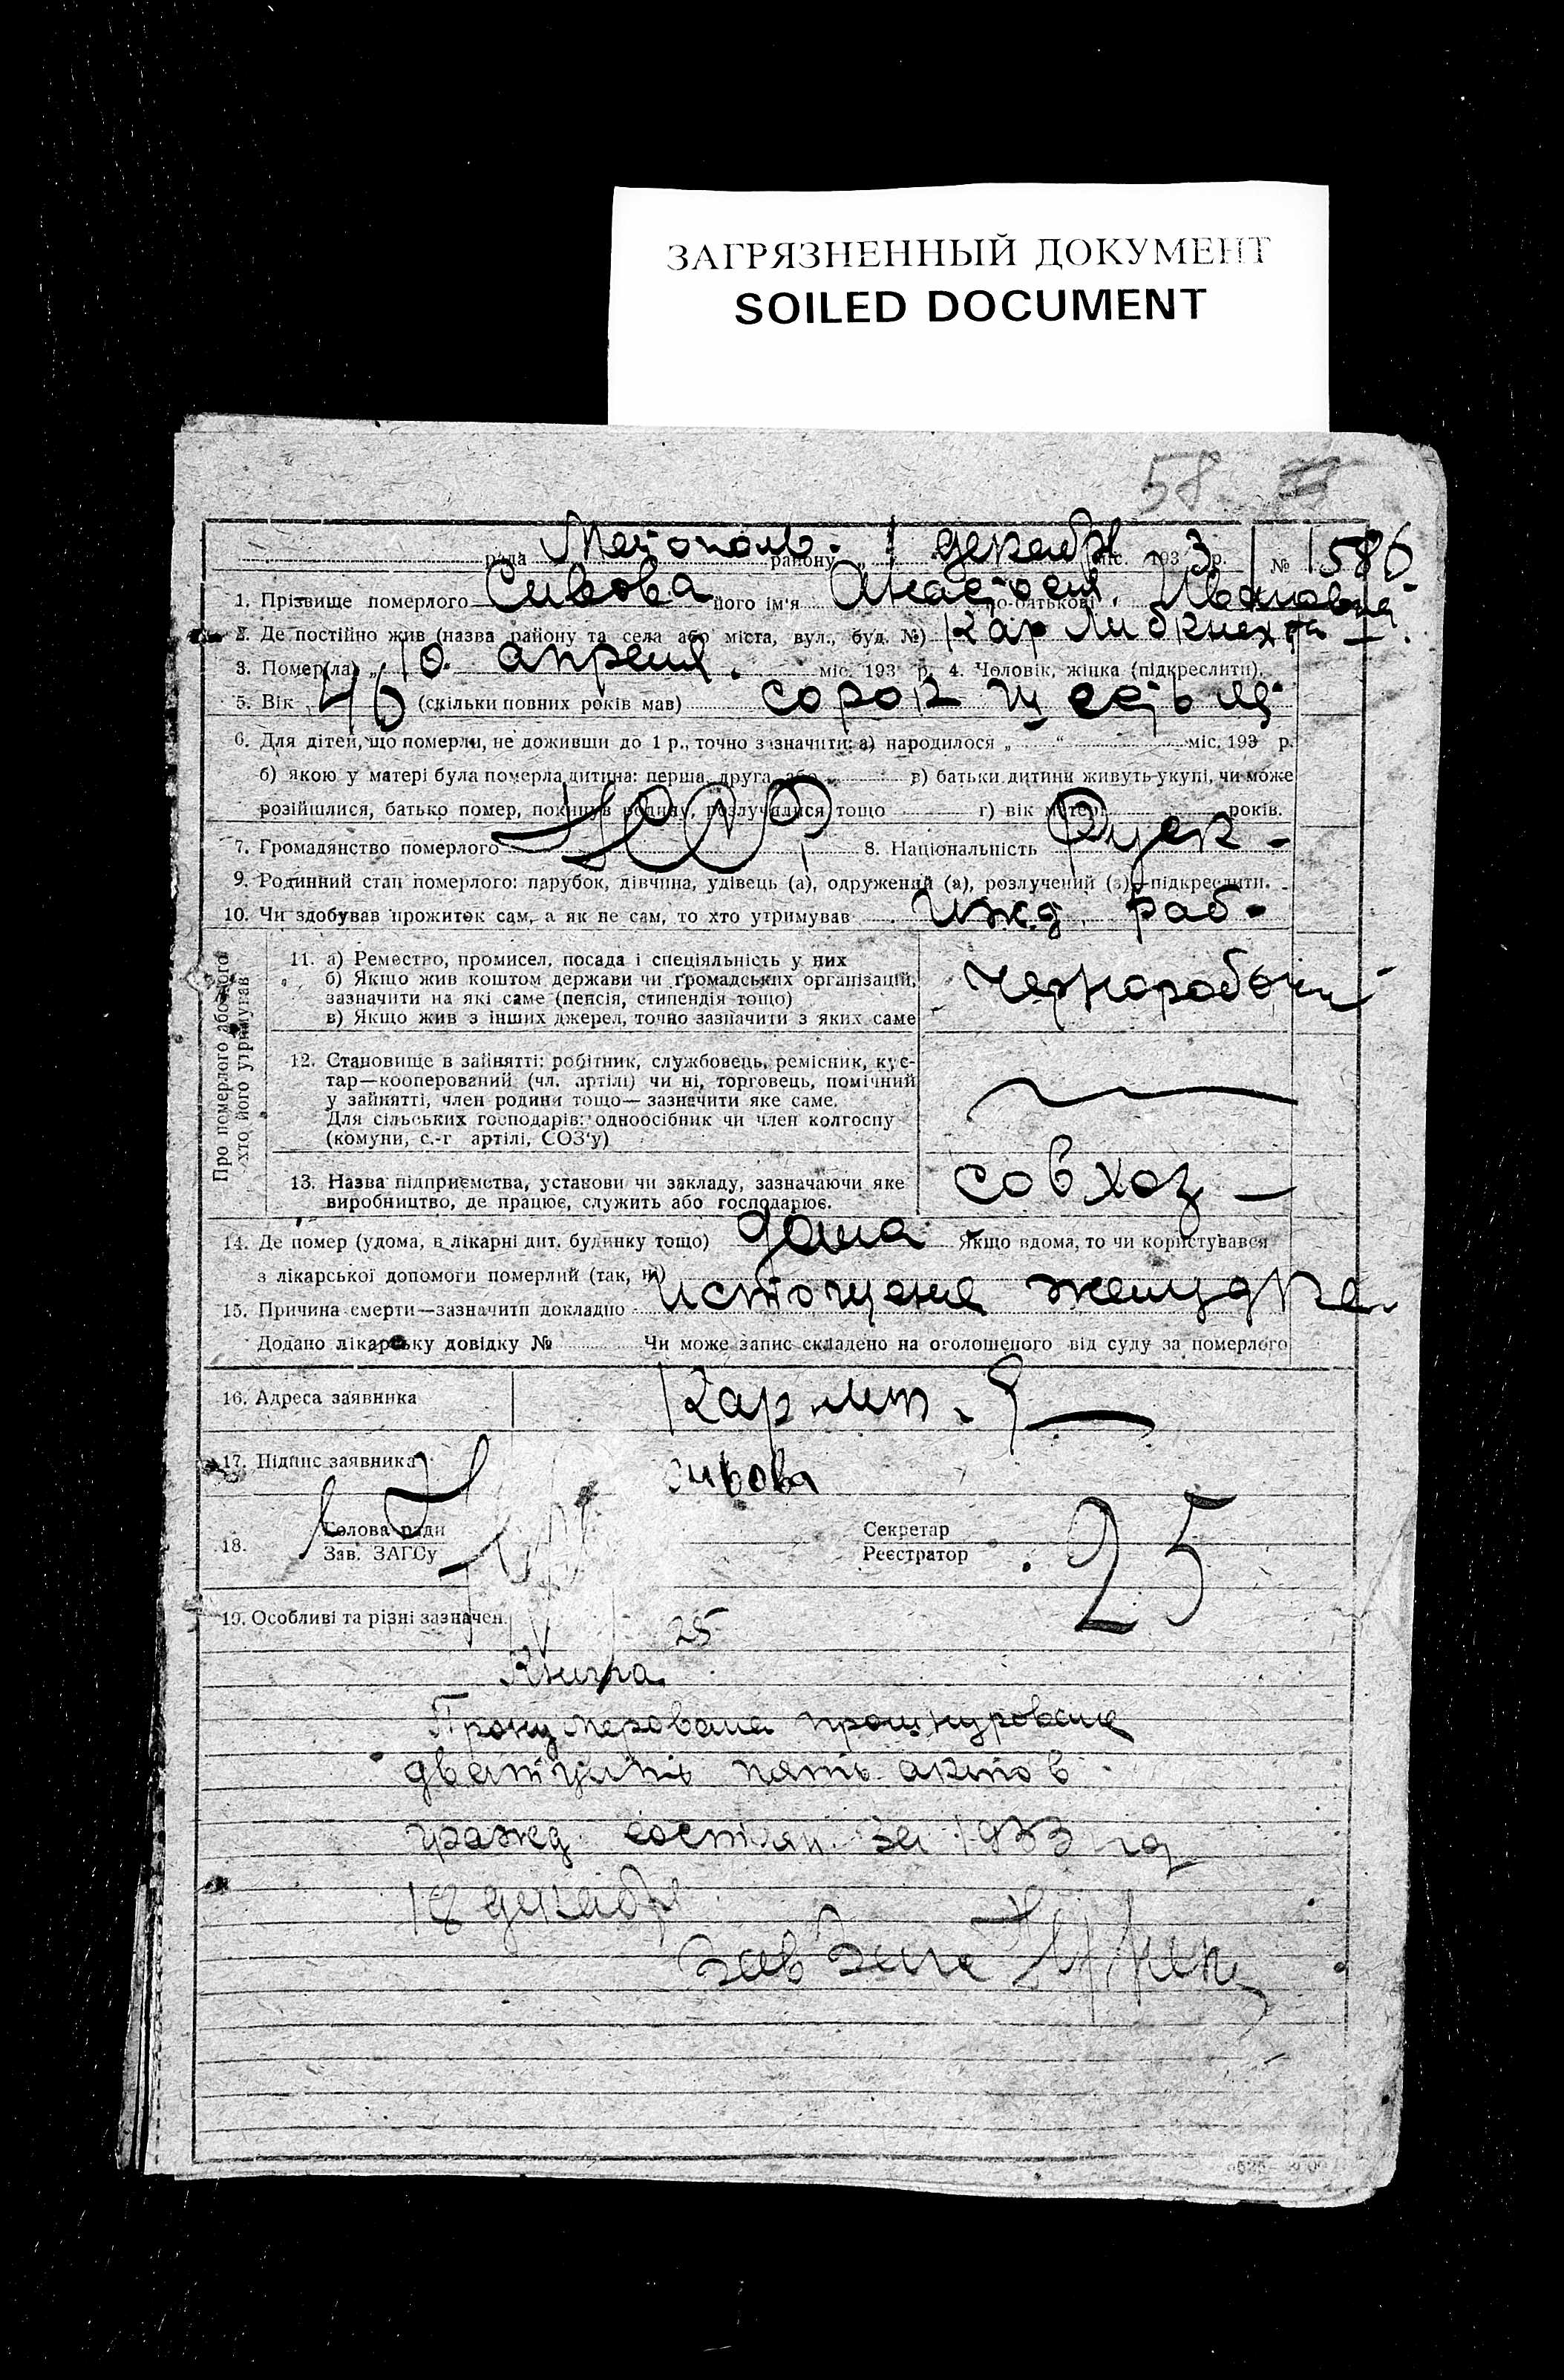 ЗАГРЯЗНЕННЫЙ ДОКУМЕНТ
SOILED DOCUMENT
58
рада Мейополь. району „ 1 декабр міс. 1933 р. № 1586
1. Прізвище померлого Сивова його ім'я Анастосия по-батькові Ивановна
2. Де постійно жив (назва району та села або міста, вул., буд. №) Кар Либкнехта
3. Помер(ла) „10 апреля. міс. 193 р. 4. Чоловік, жінка (підкреслити).
5. Вік 46 (скільки повних років мав) сорок шесть
6. Для дітей, що померли, не доживши до 1 р., точно зазначити: а) народилося „ “ міс. 193 р.
б) якою у матері була померла дитина: перша, друга, або в) батьки дитини живуть укупі, чи може
розійшлися, батько помер, покинув родину, розлучилися тощо г) вік матері років.
7. Громадянство померлого 8. Національність Руск -
9. Родинний стан померлого: парубок, дівчина, удівець (а), одружений (а), розлучений (а)—підкреслити.
10. Чи здобував прожиток сам, а як не сам, то хто утримував ижд. раб.
Про померлого або того хто його утримував
11. а) Ремество, промисел, посада і спеціяльність у них
б) Якщо жив коштом держави чи громадських організацій,
зазначити на які саме (пенсія, стипендія тощо)
в) Якщо жив з інших джерел, точно зазначити з яких саме
чернорабочи
12. Становище в зайнятті: робітник, службовець, ремісник, кус-
тар—кооперований (чл. артілі) чи ні, торговець, помічний
у зайнятті, член родини тощо— зазначити яке саме.
Для сільських господарів: одноосібник чи член колгоспу
(комуни, с.-г артілі, СОЗ'у)
13. Назва підприємства, установи чи закладу, зазначаючи яке
виробництво, де працює, служить або господарює.
совхоз —
14. Де помер (удома, в лікарні дит. будинку тощо) дома Якщо вдома, то чи користувався
з лікарської допомоги померлий (так, ні)
15. Причина смерти—зазначити докладно истощение желудка
Додано лікарську довідку № Чи може запис складено на оголошеного від суду за померлого
16. Адреса заявника Кар
17. Підпис заявника сивова
18. Голова ради
Зав. ЗАГСу
Секретар
Реєстратор
25
19. Особливі та різні зазначен.
25
Книга
Пронумерована прошнурована
двадцать пять актов
гражд. состоян. за 1933 год
18 декабр
Зав Загса